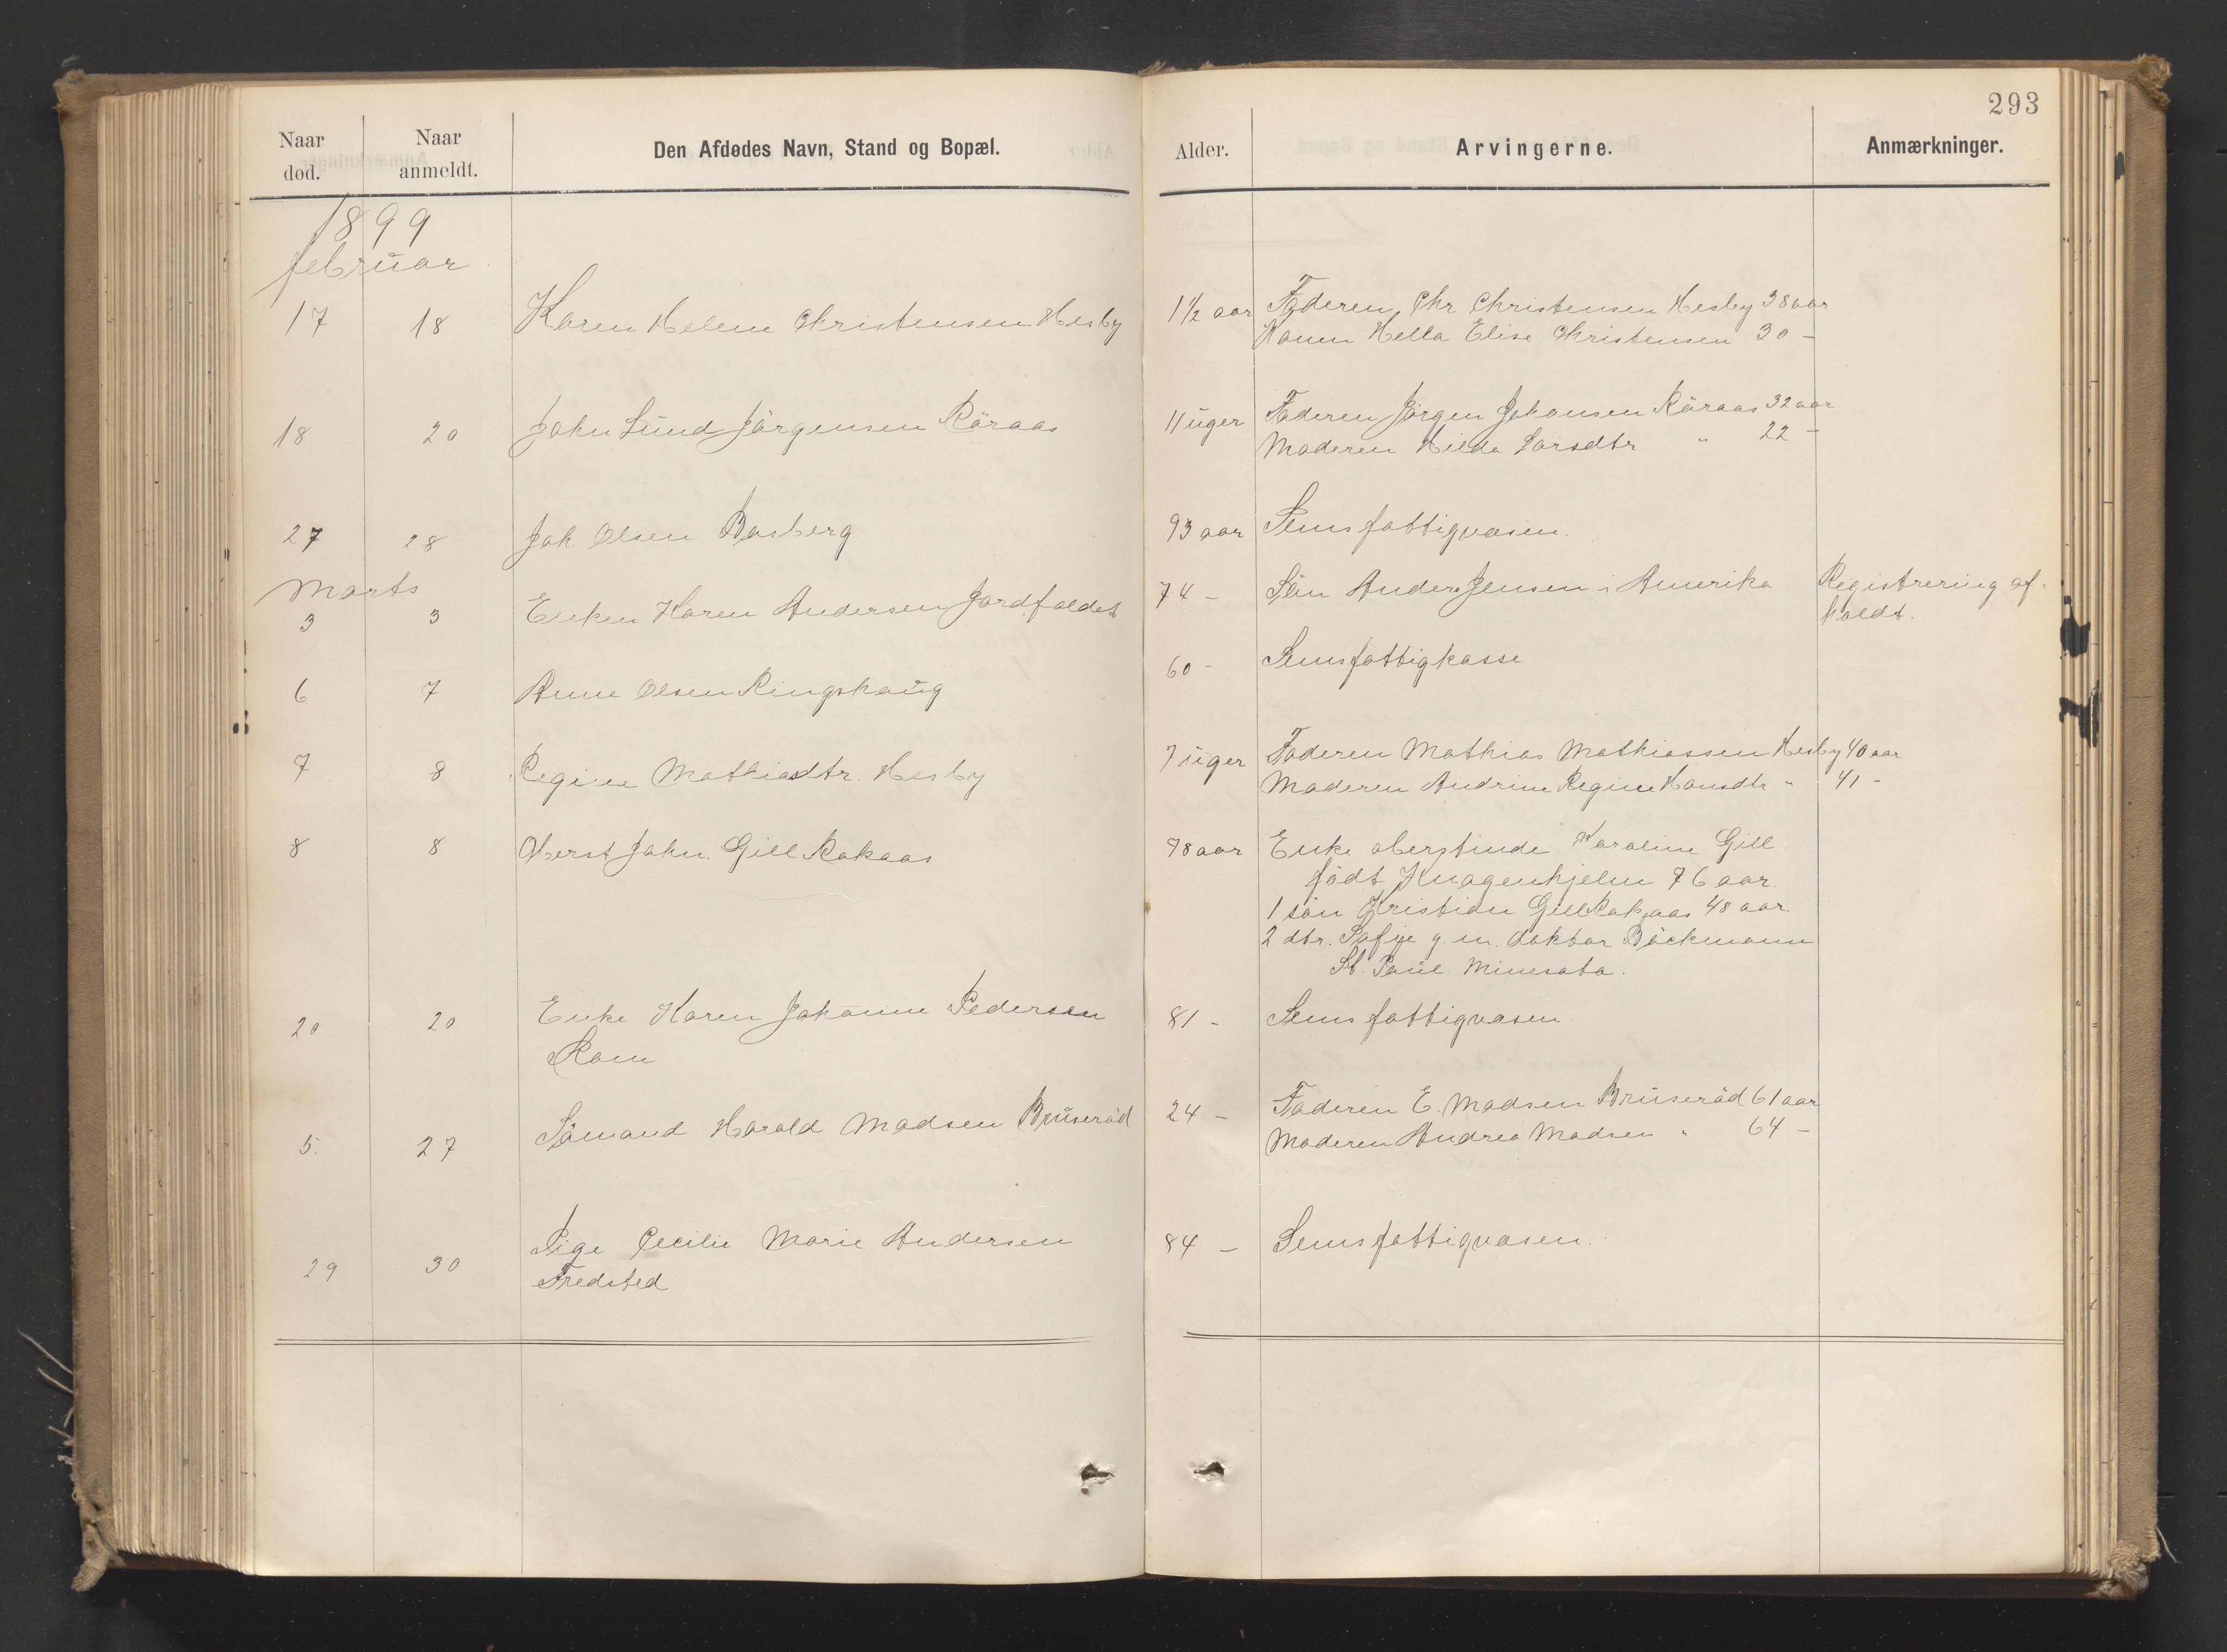 293
Naar død. Naar anmeldt. Den Afdødes Navn, Stand og Bopæl. Alder. Arvingerne. Anmærkninger.
1899
februar
17 18 Karen Helene Christensen Hesby 1 1/2 aar Faderen Chr Christensen Hesby 38 aar
Konen Hella Elise Christensen 30 -
18 20 John Lund Jörgensen Råraas 11 uger Faderen Jörgen Johansen Råraas 32 aar
Moderen Hilda Larsdtr " 22 -
27 28 Joh. Olsen Basberg 93 aar Sems fattigvæsen.
Marts
3 3 Enken Karen Andersen Jordfaldet 74 - Sön Anders Jensen i Amerika Registrering af=
holdt.
6 7 Anne Olsen Ringshaug 60 - Sems fattigkasse
7 8 Regine Mathiasdtr. Hesby 7 uger Faderen Mathias Mathiassen Hesby 40 aar
Moderen Andrine Regine Hansdtr " 41 -
8 8 Oberst John Gill Rakaas 78 aar Enke oberstinde Karoline Gill
födt Knagenhjelm 76 aar.
1 sön Kristian Gill Rakaas 48 aar.
2 dtr. Sofie g. m. doktor Böckmann
St. Paul Minesota.
20 20 Enke Karen Johanne Pedersen 81 - Sems fattigvæsen.
Rom
5. 27 Sömand Harald Madsen Bruseröd 24 - Faderen E. Madsen Bruseröd 61 aar
Moderen Andrea Madsen " 64 -
29 30 Pige Cecilie Marie Andersen 84 - Sems fattigvæsen.
Fredsted